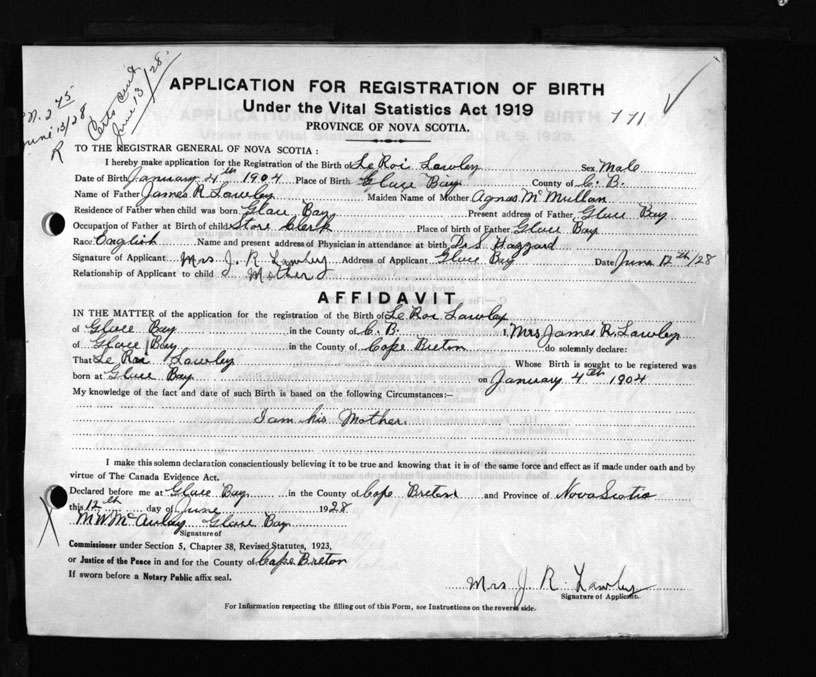 No. 245
June 13/28
R
Certs Card
June 13/28.
APPLICATION FOR REGISTRATION OF BIRTH
Under the Vital Statistics Act 1919
771
PROVINCE OF NOVA SCOTIA.
TO THE REGISTRAR GENERAL OF NOVA SCOTIA :
I hereby make application for the Registration of the Birth of Le Roi Lawley Sex Male
Date of Birth January 4th 1904 Place of Birth Glace Bay County of C. B.
Name of Father James R Lawley Maiden Name of Mother Agnes McMullan
Residence of Father when child was born Glace Bay Present address of Father Glace Bay
Occupation of Father at Birth of child Store Clerk Place of birth of Father Glace Bay
Race English Name and present address of Physician in attendance at birth Dr S. Haggard
Signature of Applicant Mrs J. R Lawley Address of Applicant Glace Bay Date June 12th/28
Relationship of Applicant to child Mother
AFFIDAVIT
IN THE MATTER of the application for the registration of the Birth of Le Roi Lawley
of Glace Bay in the County of C. B. I, Mrs James R. Lawley
of Glace Bay in the County of Cape Breton do solemnly declare:
That Le Roi Lawley Whose Birth is sought to be registered was
born at Glace Bay on January 4th 1904
My knowledge of the fact and date of such Birth is based on the following Circumstances:—
I am his Mother.
I make this solemn declaration conscientiously believing it to be true and knowing that it is of the same force and effect as if made under oath and by
virtue of The Canada Evidence Act.
Declared before me at Glace Bay in the County of Cape Breton and Province of Nova Scotia
this 12th day of June 1928
M W McAulay Glace Bay
Signature of
Commissioner under Section 5, Chapter 38, Revised Statutes, 1923,
or Justice of the Peace in and for the County of Cape Breton
If sworn before a Notary Public affix seal.
Mrs J R. Lawley
Signature of Applicant.
For Information respecting the filling out of this Form, see Instructions on the reverse side.